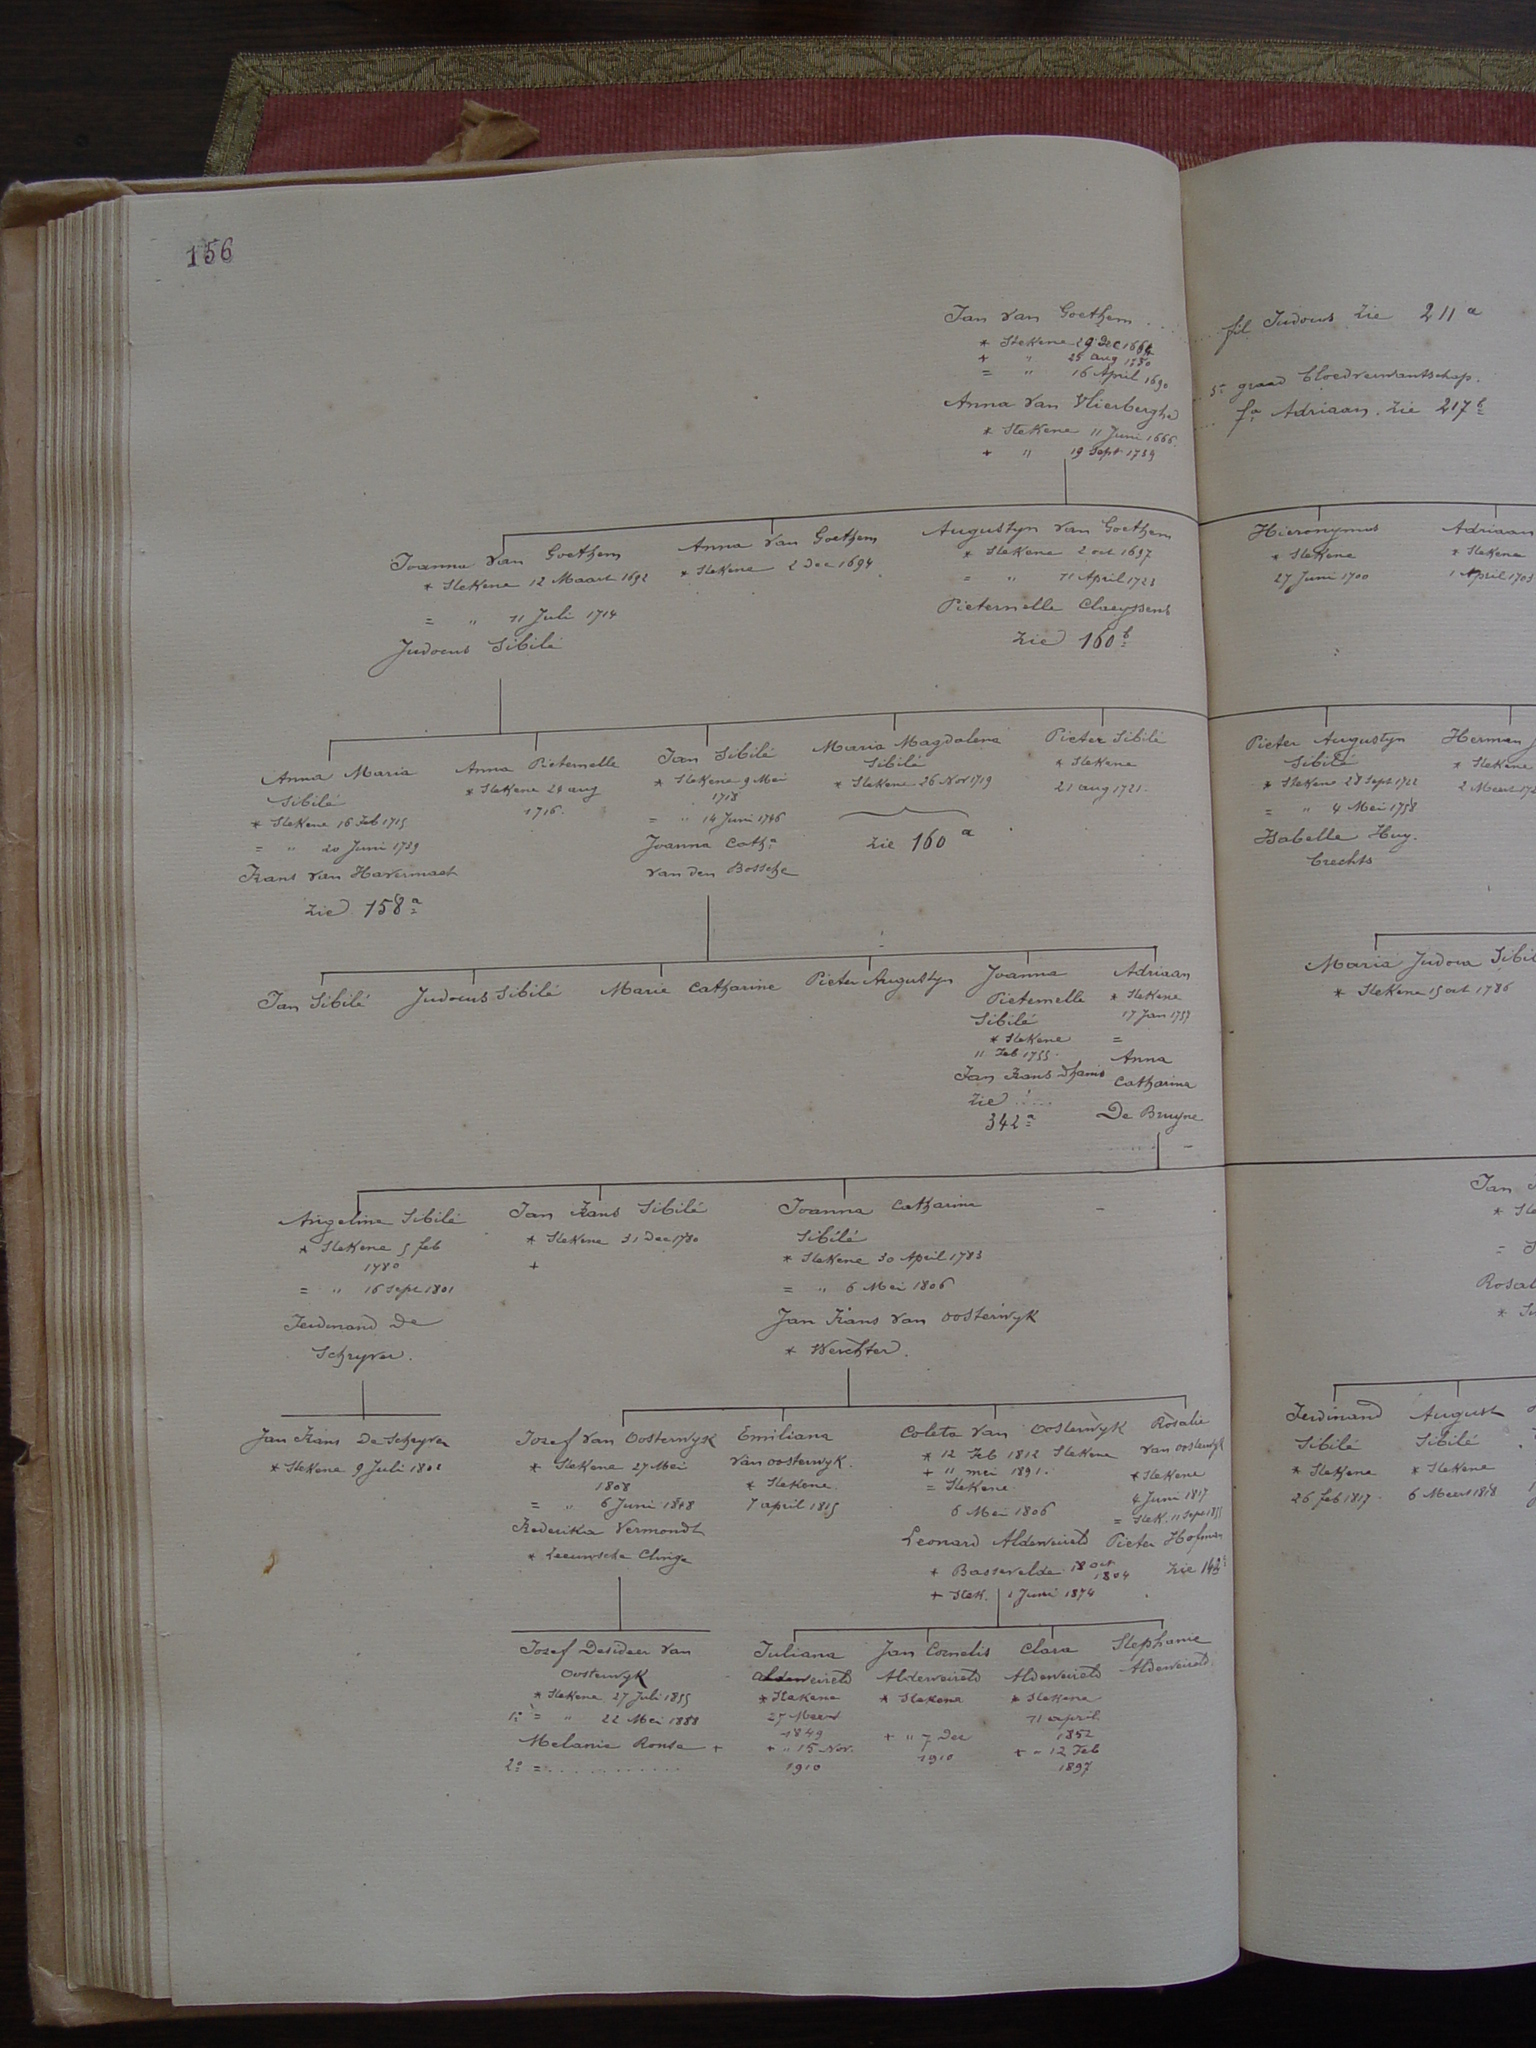 156
Jan Van Goethem . . .
* Stekene 29 Dec 1664
+ " 25 aug 1730
= " 16 April 1690
Anna Van Vlierberghe
* Stekene 11 Juni 1666.
+ " 19 Sept 1739
fil Judocus zie 211 a
graad bloedverwantschap.
fa Adriaan. zie 217 b
Joanna Van Goethem
* Stekene 12 Maart 1692
= " 11 Juli 1714
Judocus Sibilé
Anna Van Goethem
* Stekene 2 Dec 1694
Augustyn Van Goethem
* Stekene 2 oct 1697
= " 11 April 1723
Pieternelle Claeyssens
zie 160 b
Hieronymus
* Stekene
27 Juni 1700
Adriaan
* Stekene
1 April 1703
Anna Maria
Sibilé
* Stekene 16 Feb 1715
= " 20 Juni 1739
Frans Van Havermaet
zie 158 a
Anna Pieternelle
* Stekene 29 aug
1716.
Jan Sibilé
* Stekene 9 Mei
1718
= " 14 Juni 1746
Joanna Catha
van den Bossche
Maria Magdalena
Sibilé
* Stekene 26 Nov 1719
zie 160 a
Pieter Sibilé
* Stekene
21 aug 1721.
Pieter Augustyn
Sibilé
* Stekene 28 Sept. 1722
= " 4 Mei 1758
Isabelle Huy.
brechts
Herman
* Stekene
2 Meert
Jan Sibilé
Judocus Sibilé
Marie Catharine
Pieter Augustyn
Joanna
Pieternelle
Sibilé
* Stekene
11 Feb 1755.
Jan Frans Dhanis
zie . . . .
342 a
Adriaan
* Stekene
17 Jan 1757
=
Anna
Catharina
De Bruyne
Maria Judoca
* Stekene 15 oct 1786
Angeline Sibilé
* Stekene 5 feb
1780
= " 16 Sept 1801
Ferdinand De
Schryver.
Jan Frans Sibilé
* Stekene 31 Dec 1780
+
Joanna Catharina
Sibilé
* Stekene 30 April 1783
= " 6 Mei 1806
Jan Frans Van Oosterwyk
* Werchter.
Jan
Jan Frans De Schryver
* Stekene 9 Juli 1802
Jozef Van Oosterwyk
* Stekene 27 Mei
1808
= " 6 Juni 1848
Frederika Vermondt
* Leeuwsche Clinge
Emiliana
Van Oosterwyk.
* Stekene
7 april 1815
Coleta Van Oosterwyk
* 12 Feb 1812 Stekene
+ 11 mei 1891.
= Stekene
6 Mei 1806
Leonard Alderweireld
* Bassevelde 18 oct
1804
+ Stek. 1 Juni 1874
Rosalie
Van Oosterwyk
* Stekene
4 Juni 1817
= Stek. 11 Sept 1855
Pieter Hofman
Ferdinand
Sibilé
* Stekene
26 feb 1817.
August
Sibilé
* Stekene
6 Meert 1818
Jozef Desideer Van
Oosterwyk
* Stekene 27 Juli 1855
1° = " 22 Mei 1888
Melanie Ronse +
2° = . . . . . . . . . .
Juliana
Alderweireld
* Stekene
27 Meert
1849
+ " 15 Nov.
1910
Jan Cornelis
Alderweireld
* Stekene
+ " 7 Dec
1910
Clara
Alderweireld
* Stekene
11 april
1852
+ " 12 Feb
1897
Stephanie
Alderweireld.